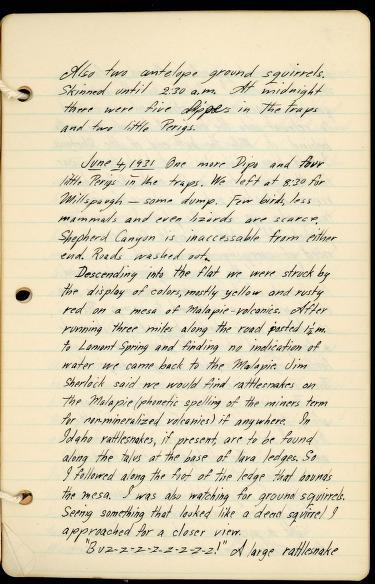 Also two antelope ground squirrels.
Skinned until 2:30 a.m. At midnight
there were five Dipos in the traps
and two little Perigs.
June 4, 1931 One more Dipo and four
little Perigs in the traps. We left at 8:30 for
Millspaugh — some dump. Few birds, less
mammals and even lizards are scarce.
Shepherd Canyon is inaccessable from either
end. Roads washed out.
Descending into the flat we were struck by
the display of colors, mostly yellow and rusty
red on a mesa of Malapie-volcanics. After
running three miles along the road posted 1½ m.
to Lamont Spring and finding no indication of
water we came back to the Malapie. Jim
Sherlock said we would find rattlesnakes on
the Malapie (phonetic spelling of the miners term
for non-mineralized volcanics) if anywhere. In
Idaho rattlesnakes, if present, are to be found
along the talus at the base of lava ledges. So
I followed along the foot of the ledge that bounds
the mesa. I was also watching for ground squirrels.
Seeing something that looked like a dead squirrel I
approached for a closer view.
"Buz-z-z-z-z-z-z-z!" A large rattlesnake